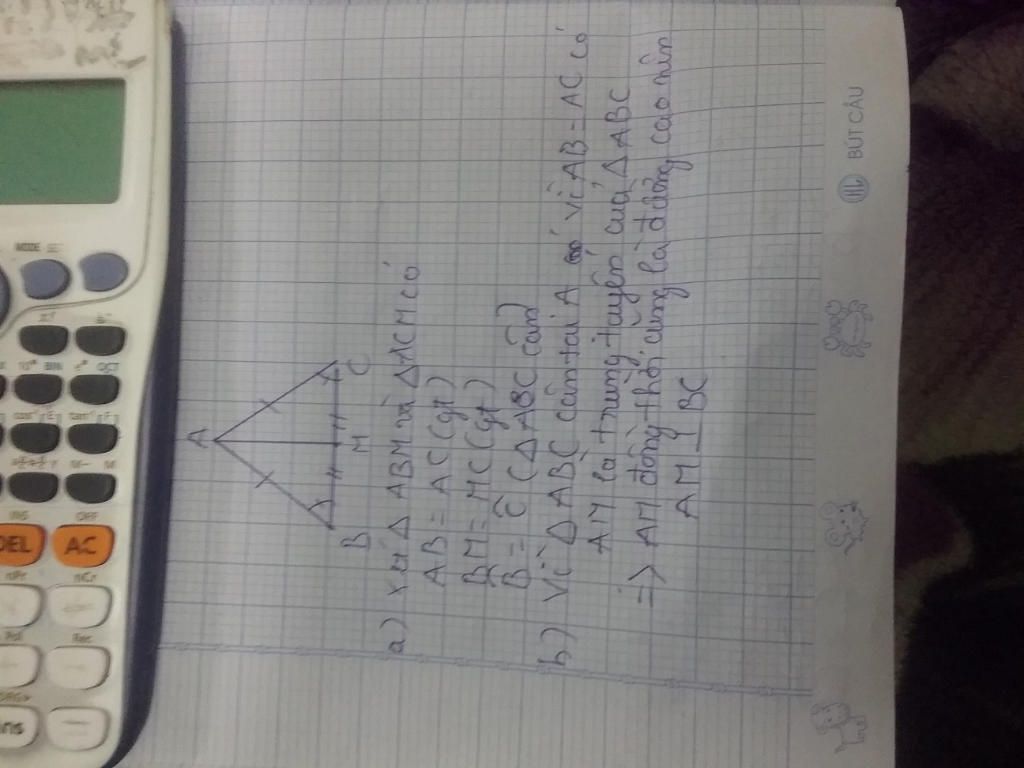 A
B
M
C
a) Xét Δ ABM và ΔACM có
AB = AC (gt)
BM = MC (gt)
B̂ = Ĉ (ΔABC cân)
b) Vì ΔABC cân tại A vì AB = AC có
AM là trung tuyến của ΔABC
=> AM đồng thời cũng là đường cao nên
AM ⊥ BC
BÚT CÂU
MODE
DEL
AC
INS
OFF
nPr
nCr
Pol
Rec
BIN
OCT
M-
M